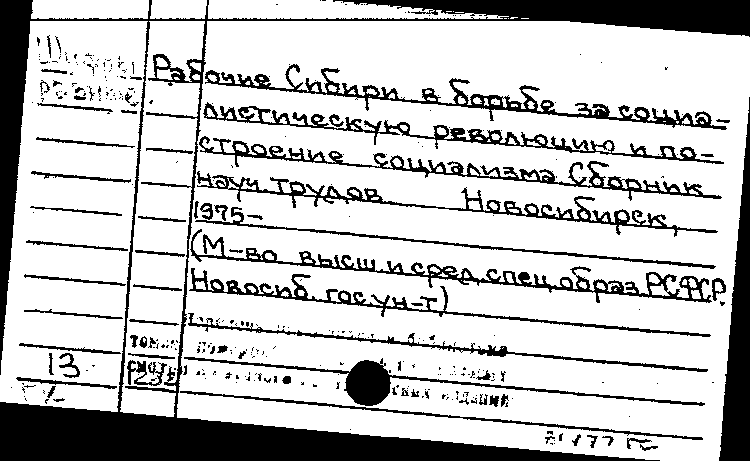 Шифры
разные
Рабочие Сибири в борьбе за социа-
листическую революцию и по-
строение социализма Сборник
науч. трудов Новосибирск,
1975-
(М-во высш. и сред. спец. образ. РСФСР.
Новосиб. гос. ун-т)
библиотека
томов
смотри изданий
13